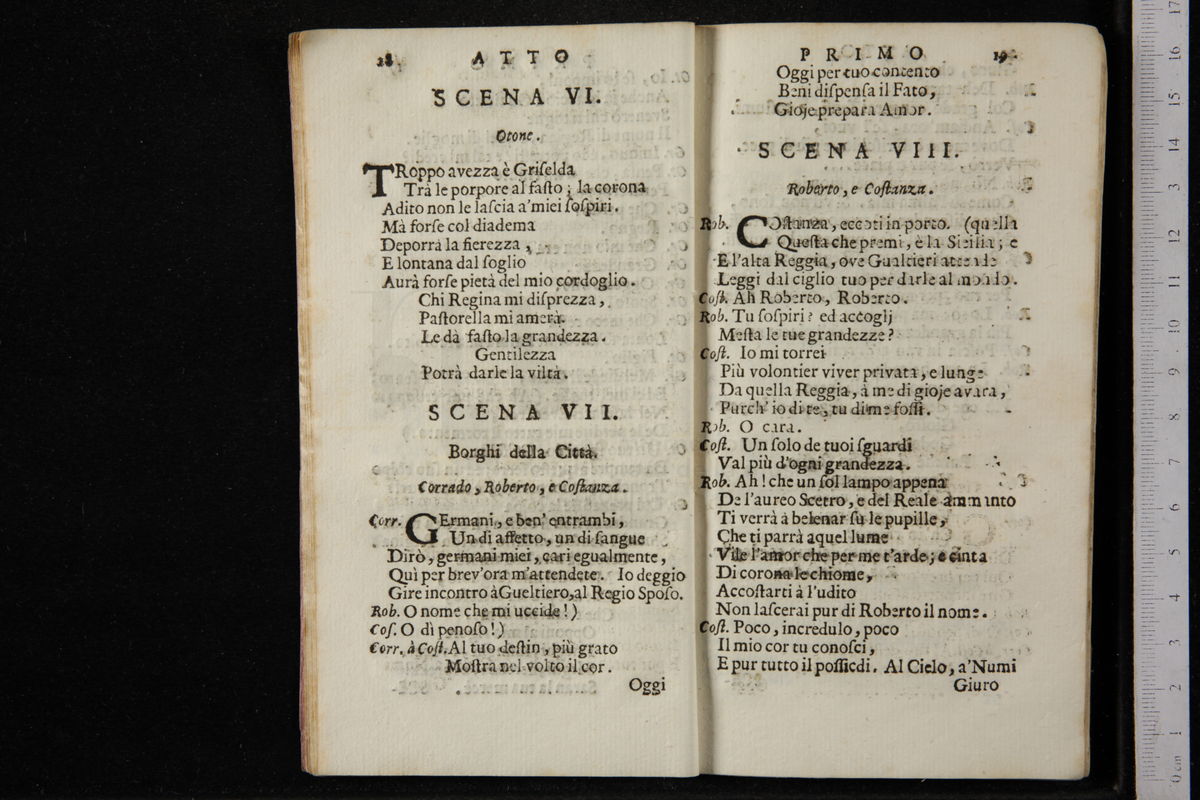 28 ATTO
SCENA VI.
Otone.
TRoppo avezza è Griſelda
Trà le porpore al faſto; la corona
Adito non le laſcia a'miei ſoſpiri.
Mà forſe col diadema
Deporrà la fierezza,
E lontana dal ſoglio
Aurà forſe pietà del mio cordoglio.
Chi Regina mi diſprezza,
Paſtorella mi amerà.
Le dà faſto la grandezza.
Gentilezza
Potrà darle la viltà.
SCENA VII.
Borghi della Città.
Corrado, Roberto, e Coſtanza.
Corr. GErmani, e ben' entrambi,
Un di affetto, un di ſangue
Dirò, germani miei, cari egualmente,
Quì per brev'ora m'attendete. Io deggio
Gire incontro àGueltiero,al Regio Spoſo.
Rob. O nome che mi uccide!)
Coſ. O dì penoſo!)
Corr. à Coſt. Al tuo deſtin, più grato
Moſtra nel volto il cor.
Oggi
PRIMO 19.
Oggi per tuo contento
Beni diſpenſa il Fato,
Gioje prepara Amor.
SCENA VIII.
Roberto, e Coſtanza.
Rob. COſtanza, eccoti in porto. (quella
Queſta che premi, è la Sicilia; e
E l'alta Reggia, ove Gualtieri attende
Leggi dal ciglio tuo per darle al mondo.
Coſt. Ah Roberto, Roberto.
Rob. Tu ſoſpiri? ed accoglj
Meſta le tue grandezze?
Coſt. Io mi torrei
Più volontier viver privata, e lunge
Da quella Reggia, à me di gioje avara,
Purch' io di te, tu di me foſſi.
Rob. O cara.
Coſt. Un ſolo de tuoi ſguardi
Val più d'ogni grandezza.
Rob. Ah! che un ſol lampo appena
De l'aureo Scetro, e del Reale ammanto
Ti verrà à belenar ſu le pupille,
Che ti parrà aquel lume
Vile l'amor che per me t'arde; e cinta
Di corona le chiome,
Accoſtarti à l'udito
Non laſcerai pur di Roberto il nome.
Coſt. Poco, incredulo, poco
Il mio cor tu conoſci,
E pur tutto il poſſiedi. Al Cielo, a'Numi
Giuro